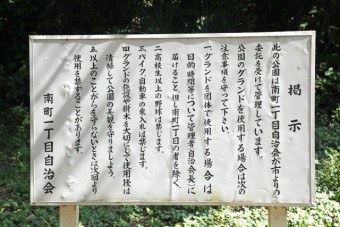 掲示
此の公園は南町一丁目自治会が市よりの
委託を受けて管理しています。
公園のグランドを使用する場合は次の
注意事項を守って下さい。
一、グランドを団体で使用する場合は
目的、時間等について管理者(自治会長)に
届けること。担し南町一丁目の者を除く。
二、高校生以上の野球は禁じます。
三、バイク、自動車の乗入れは禁じます。
四、グランドの施設や樹木を大切にして使用後は
清掃して公園の美観を守りましょう。
五、以上のことがらを守らないときは次回より
使用を禁ずることがあります。
南町一丁目自治会